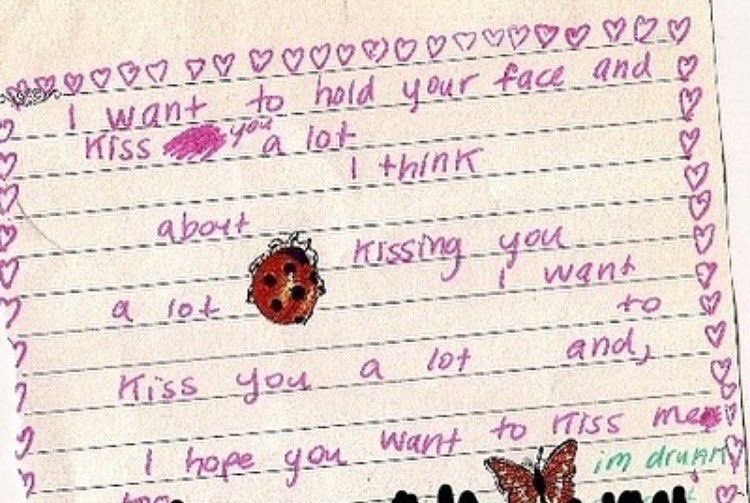 I want to hold your face and
Kiss you a lot
I think
about
Kissing you
a lot I want
to
Kiss you a lot and,
I hope you want to Kiss me
im drunk
too